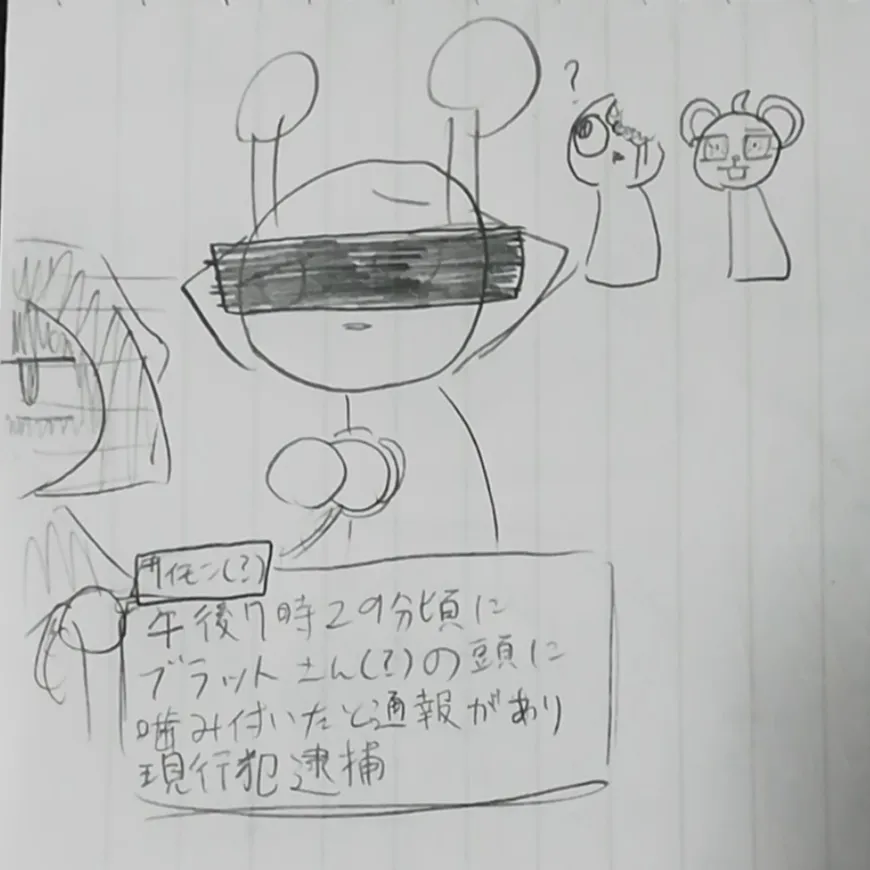 ?
サイモン(?)
午後7時29分頃に
ブラットさん(?)の頭に
噛み付いたと通報があり
現行犯逮捕